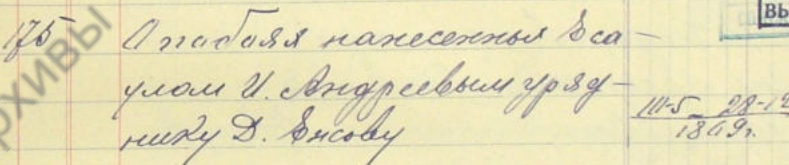 175 О побоях нанесенных Еса-
улом И. Андреевым уряд-
нику Д. Енсову
III-5 28-12
1869г.
рхивы
вы